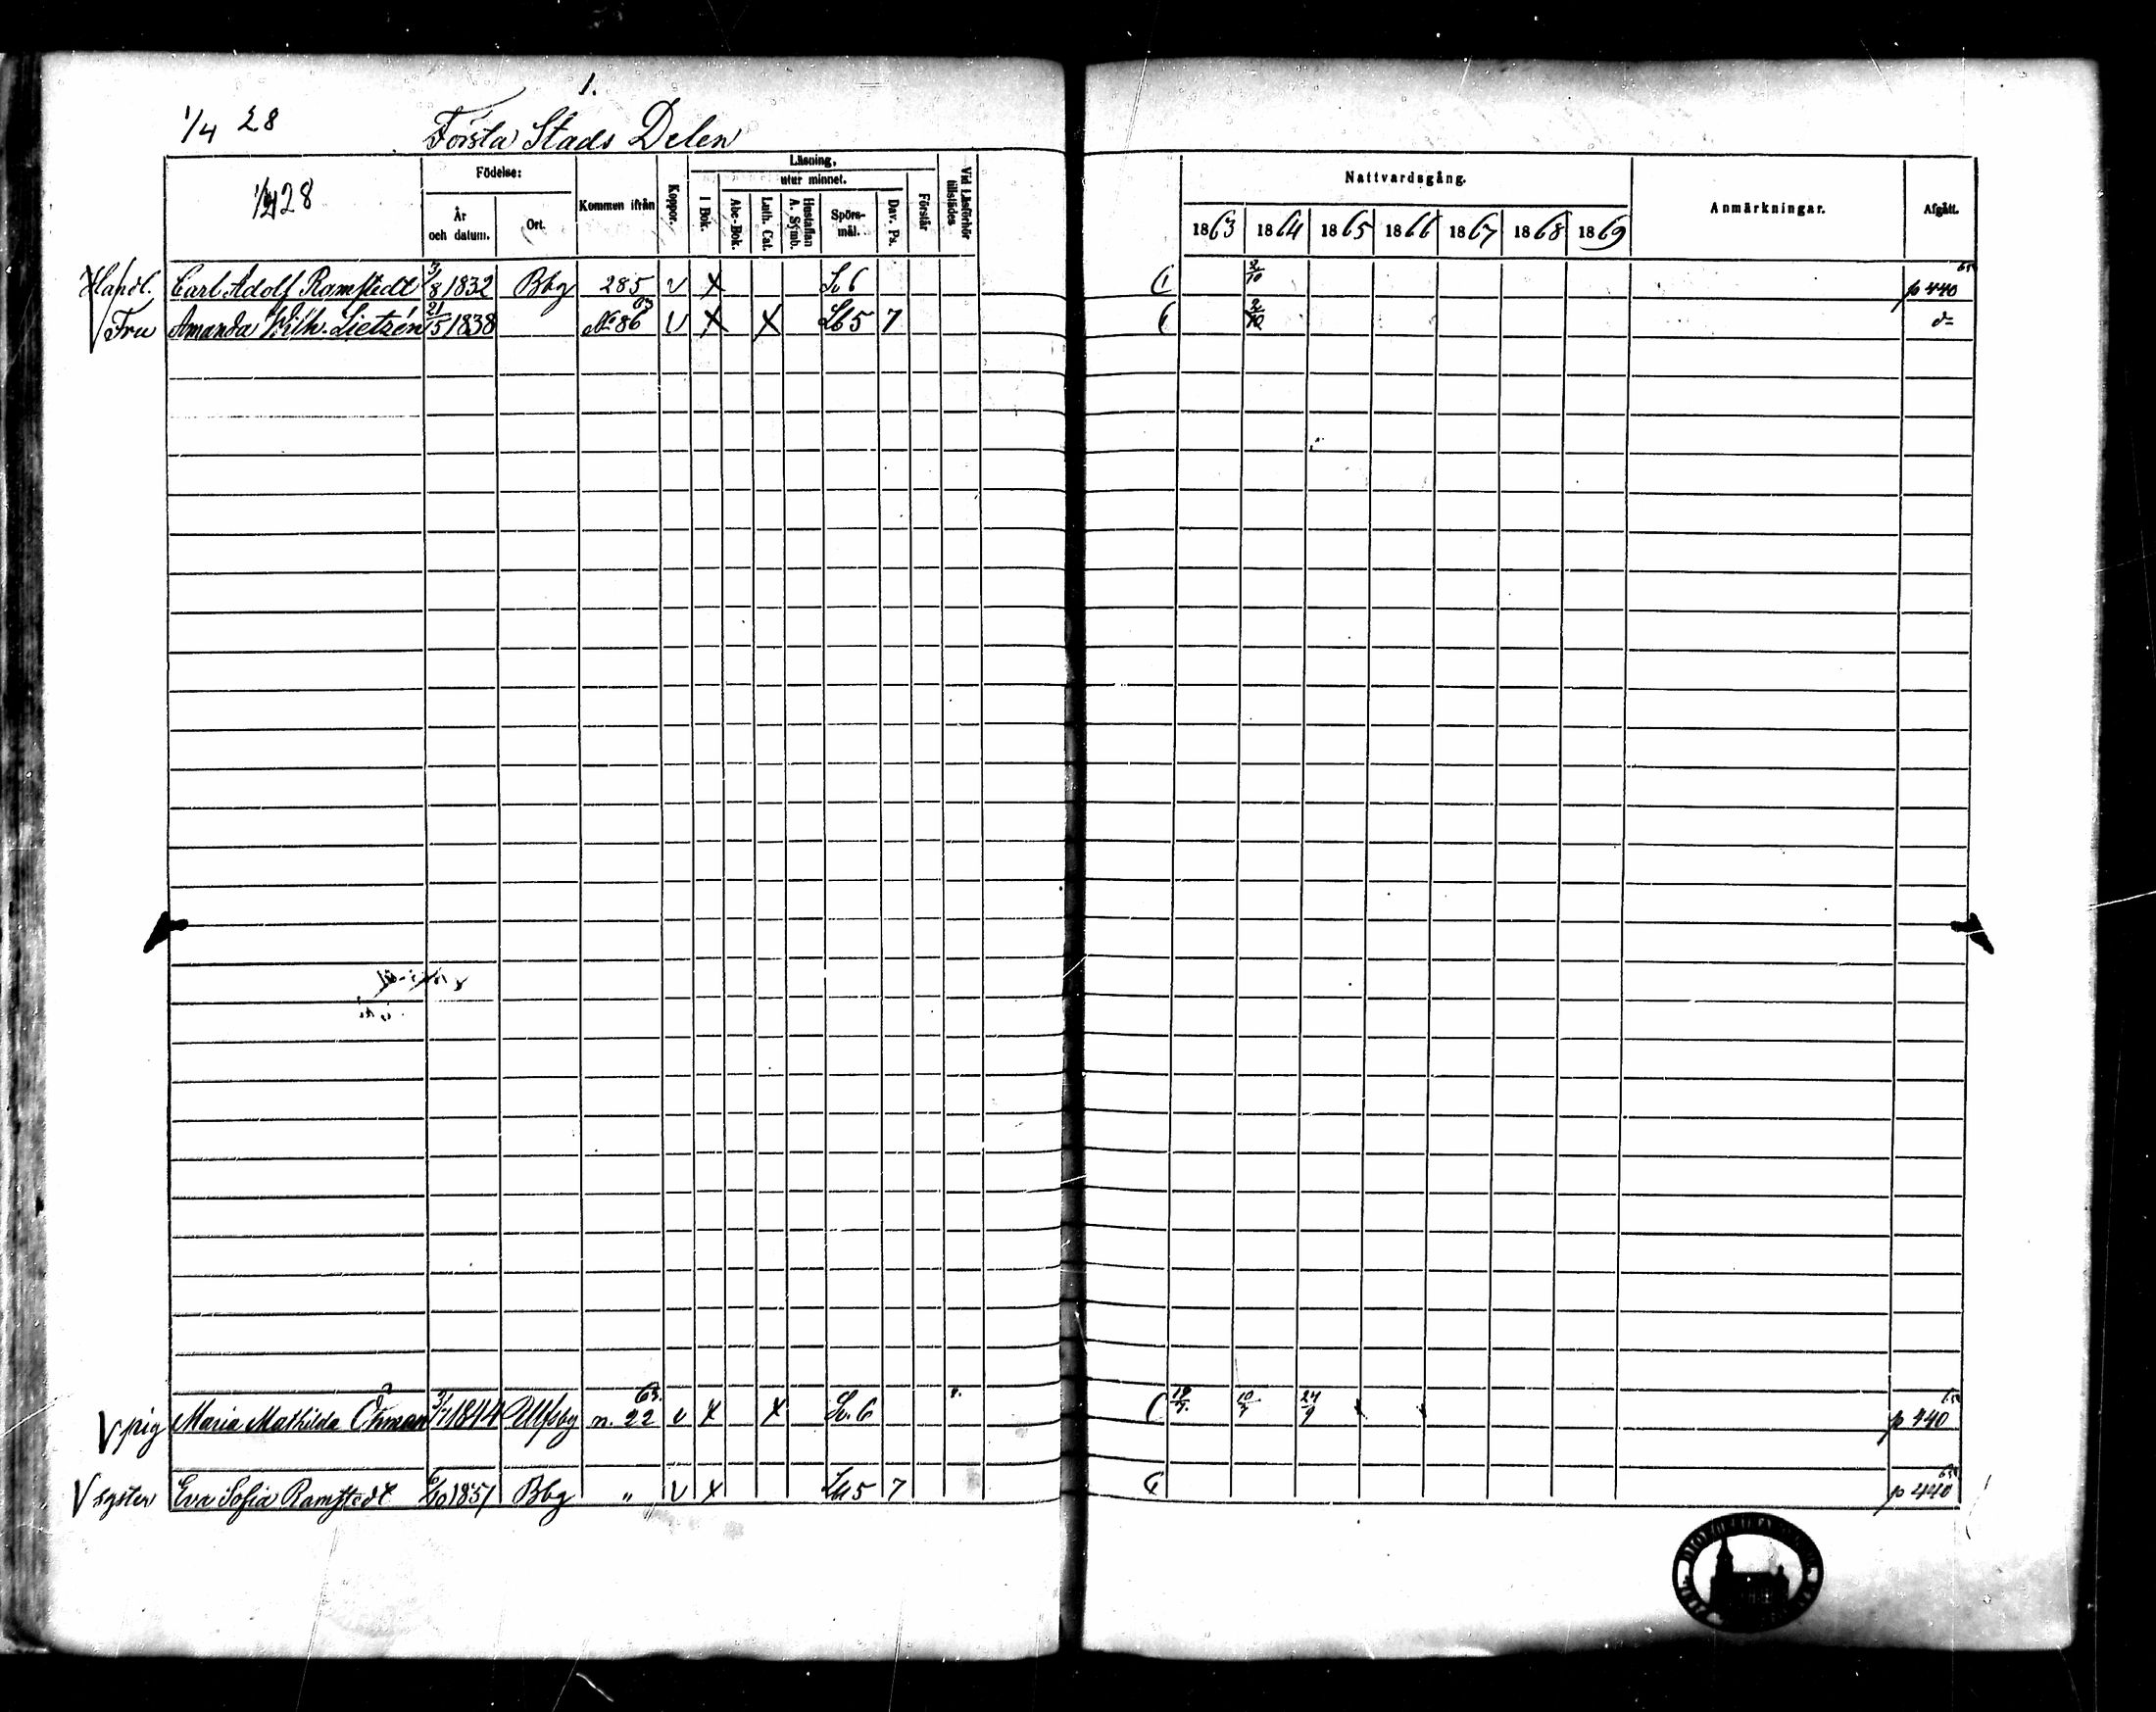 1.
1/4 28 Första Stads Delen
1/4 28
Födelse:
År och datum.
Ort.
Kommen ifrån
Koppor.
Läsning,
utur minnet.
I Bok.
Abc-Bok.
Luth. Cat.
Hustaflan A. Symb.
Spörs-mål.
Dav. Ps.
Förstår
Vid Läsförhör tillstädes
Nattvardsgång.
1863 1864 1865 1866 1867 1868 1869
Anmärkningar.
Afgått.
Handl. Carl Adolf Ramstedt 3/8 1832 Bbg 285 v x Sv 6 2/10 p 440 65
Fru Amanda Wilh. Lietzén 21/5 1838 No 86 63 v x x Sb 5 7 2/10 d=
pig Maria Mathilda Öhman 1844 Ulfsby n. 22 63. v x x Sv. 6 24/9 p 440 65
syster Eva Sofia Ramstedt 6/10 1851 Bbg " v x Sb 5 7 p 440 65